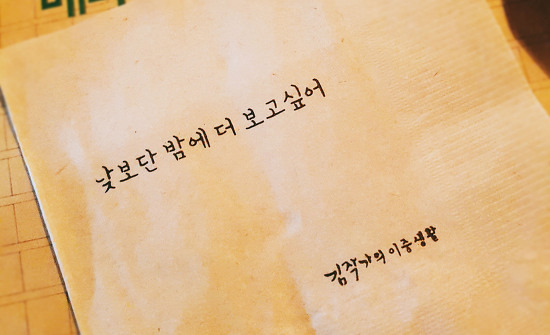 낮보단 밤에 더 보고싶어
김작가의 이중생활